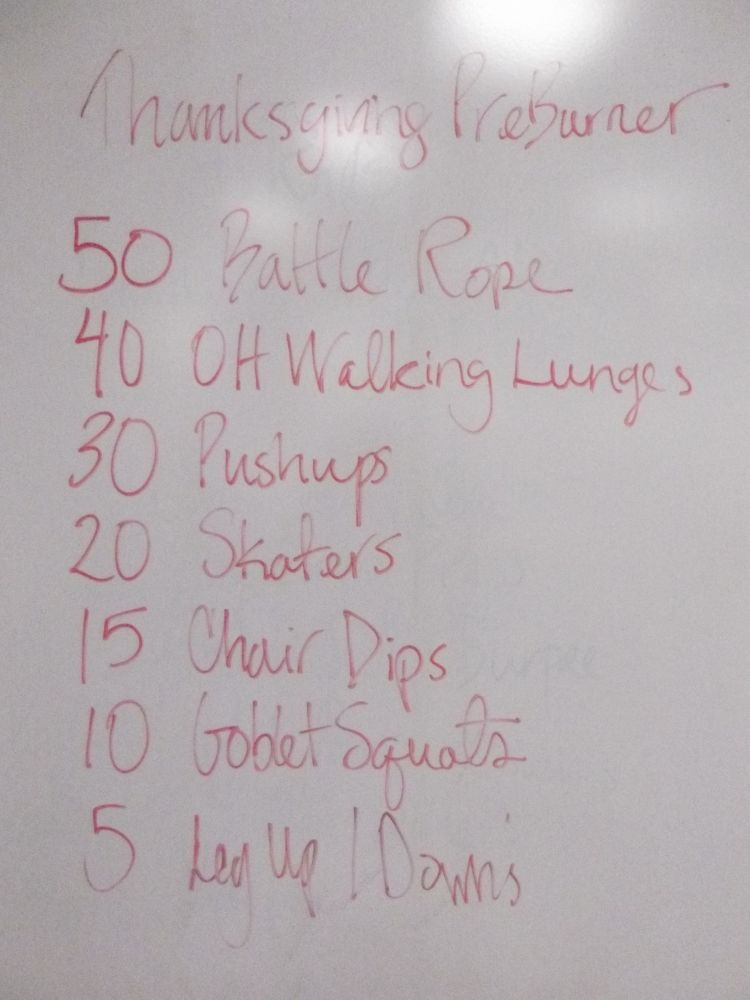 Thanksgiving PreBurner
50 Battle Rope
40 OH Walking Lunges
30 Pushups
20 Skaters
15 Chair Dips
10 Goblet Squats
5 Leg Up / Down's